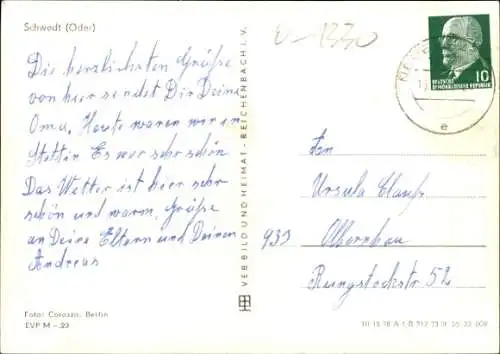 Schwedt (Oder)
0-1330
Die herzlichsten Grüße
von hier sendet Dir Deine
Oma. Heute waren wir in
Stettin Es war sehr schön
Das Wetter ist hier sehr
schön und warm, Grüße
an Deine Eltern und Deinen
Andreas
Foto: Corazza, Berlin
EVP M -.20
VEB BILD UND HEIMAT - REICHENBACH I. V.
10
DEUTSCHE
DEMOKRATISCHE REPUBLIK
e
An
Ursula
933 Olbernhau
Rungstockstr 52